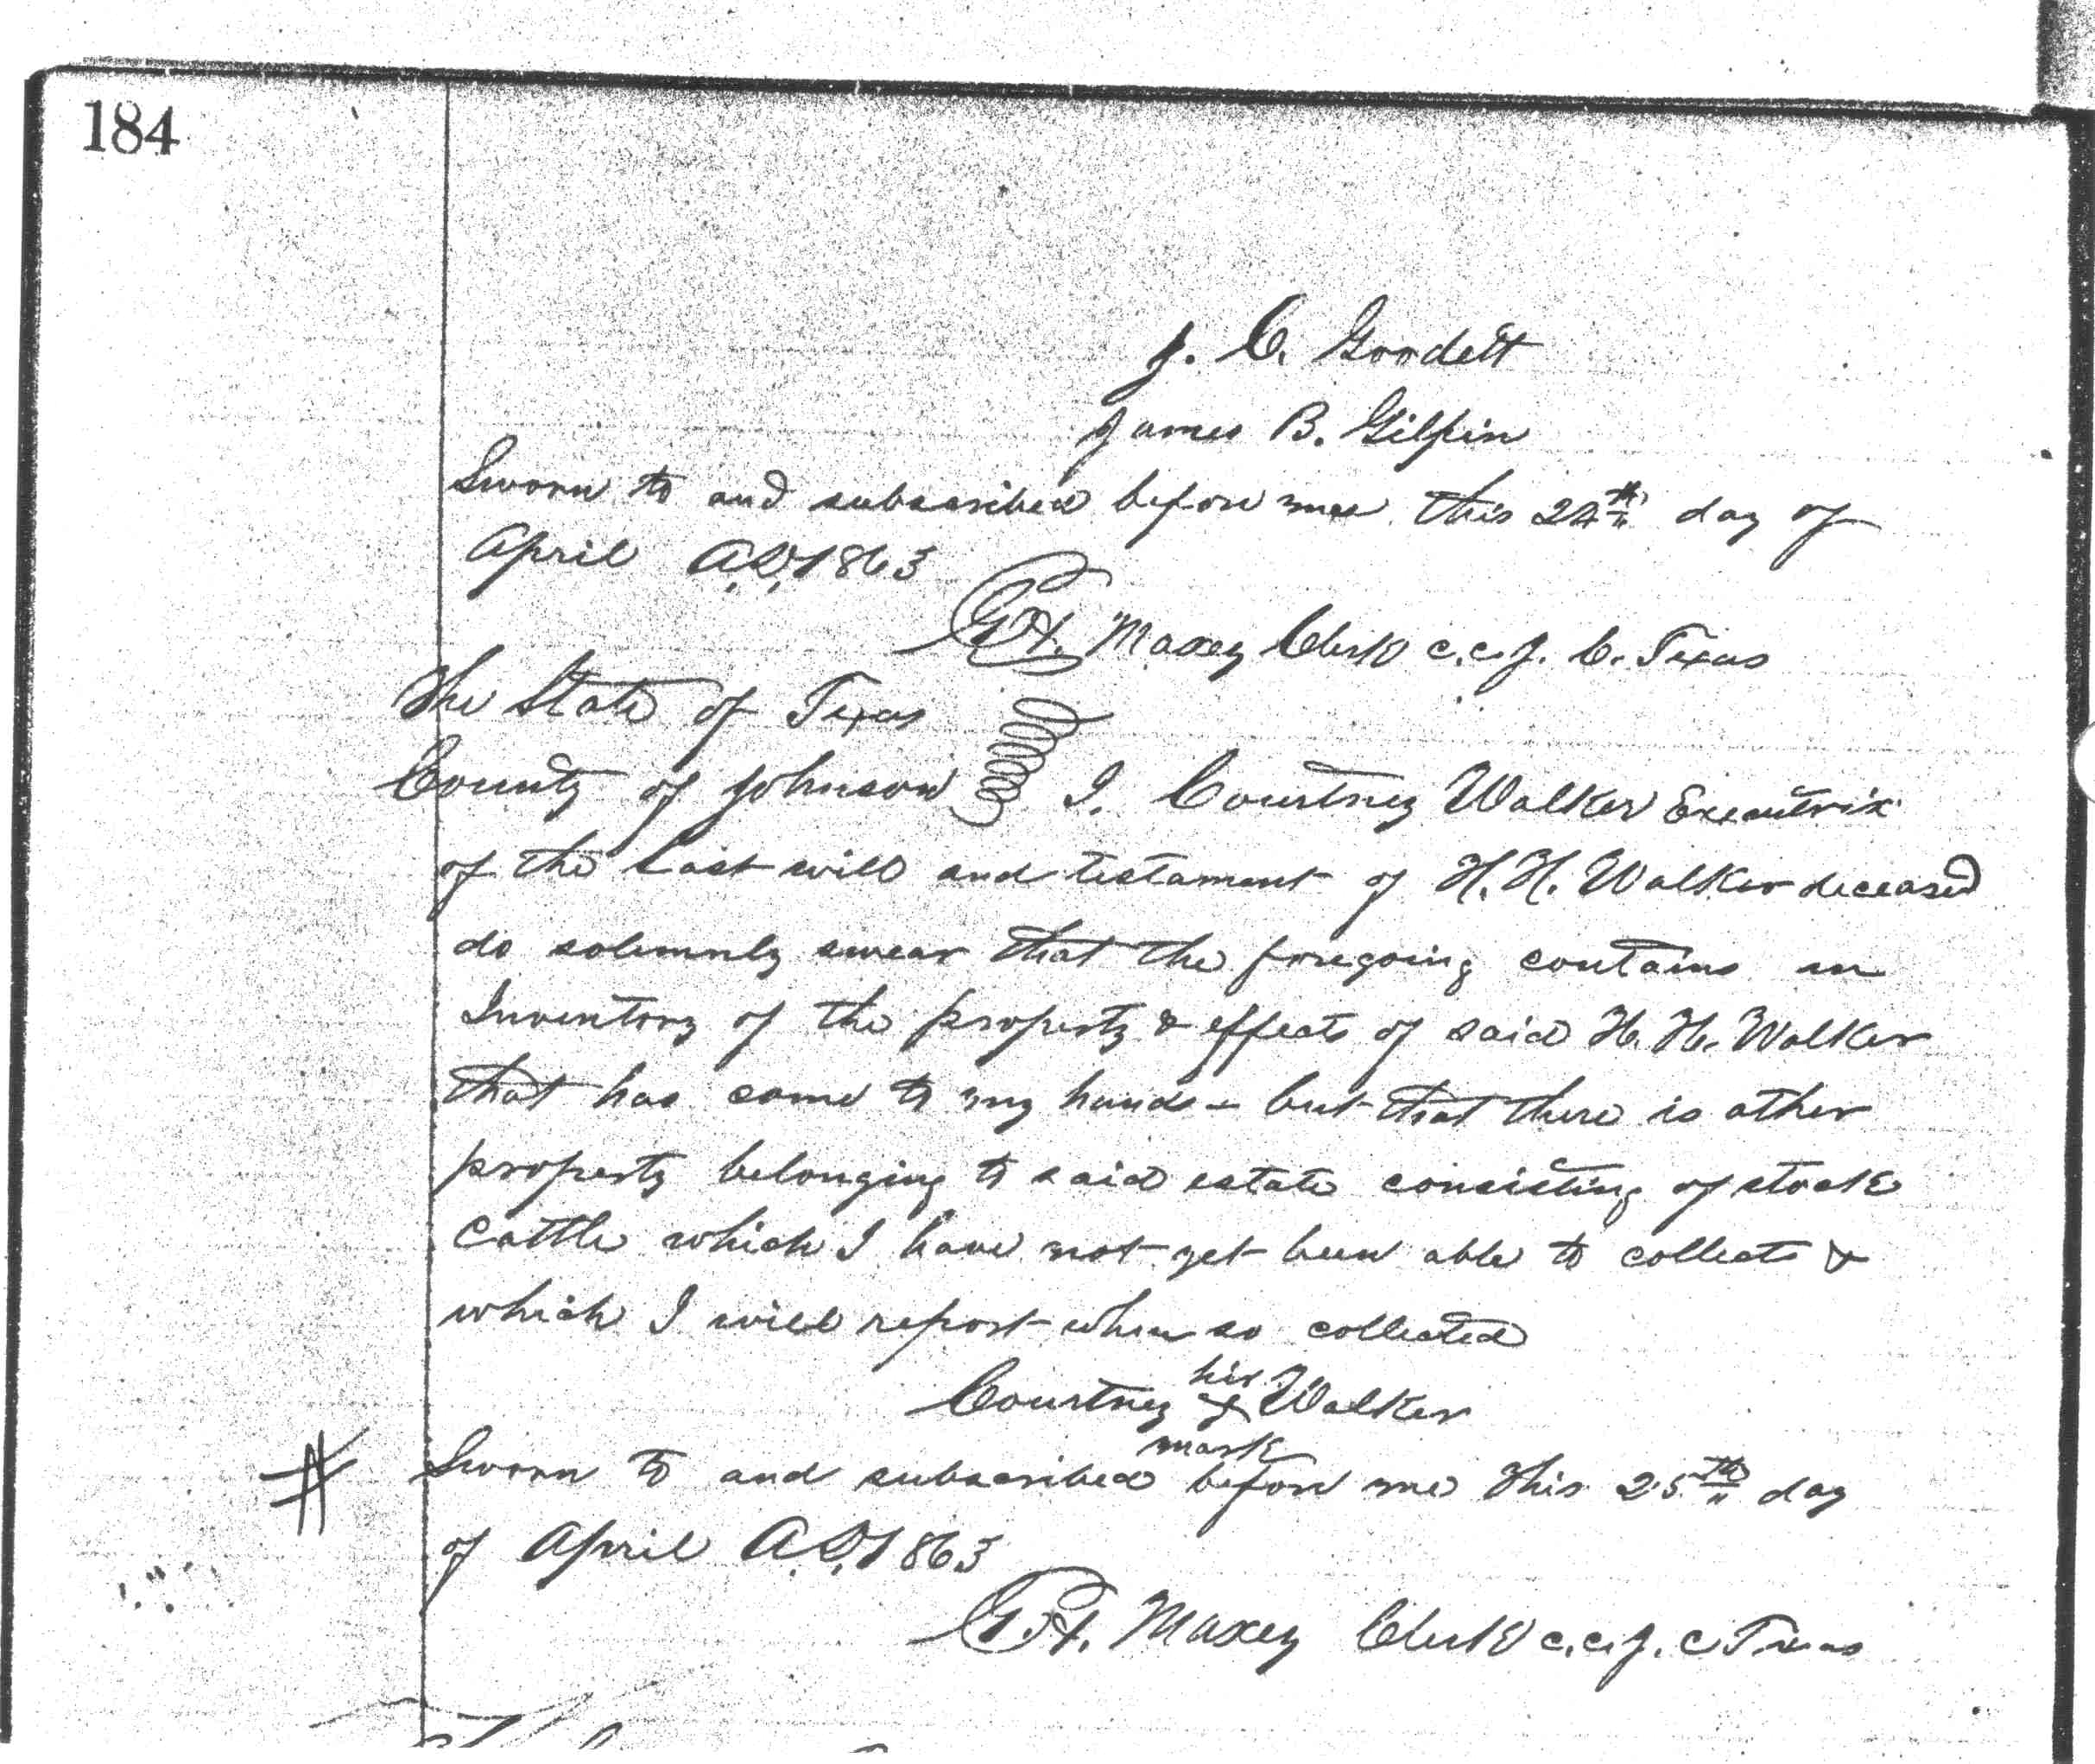 184
J. C. Goodett
James B. Gilpin
Sworn to and subscribed before me this 24th day of
April A.D. 1863
G.H. Maxey Clerk C.C.J. C. Texas
The State of Texas
County of Johnson I. Courtney Walker Executrix
of the last will and testament of H. H. Walker deceased
do solemnly swear that the foregoing contains an
Inventory of the property & effects of said H. H. Walker
that has come to my hands - but that there is other
property belonging to said estate consisting of stock
Cattle which I have not yet been able to collect &
which I will report when so collected
his
Courtney X Walker
mark
Sworn to and subscribed before me this 25th day
of April A.D. 1863
G.H. Maxey Clerk C.C.J. C Texas